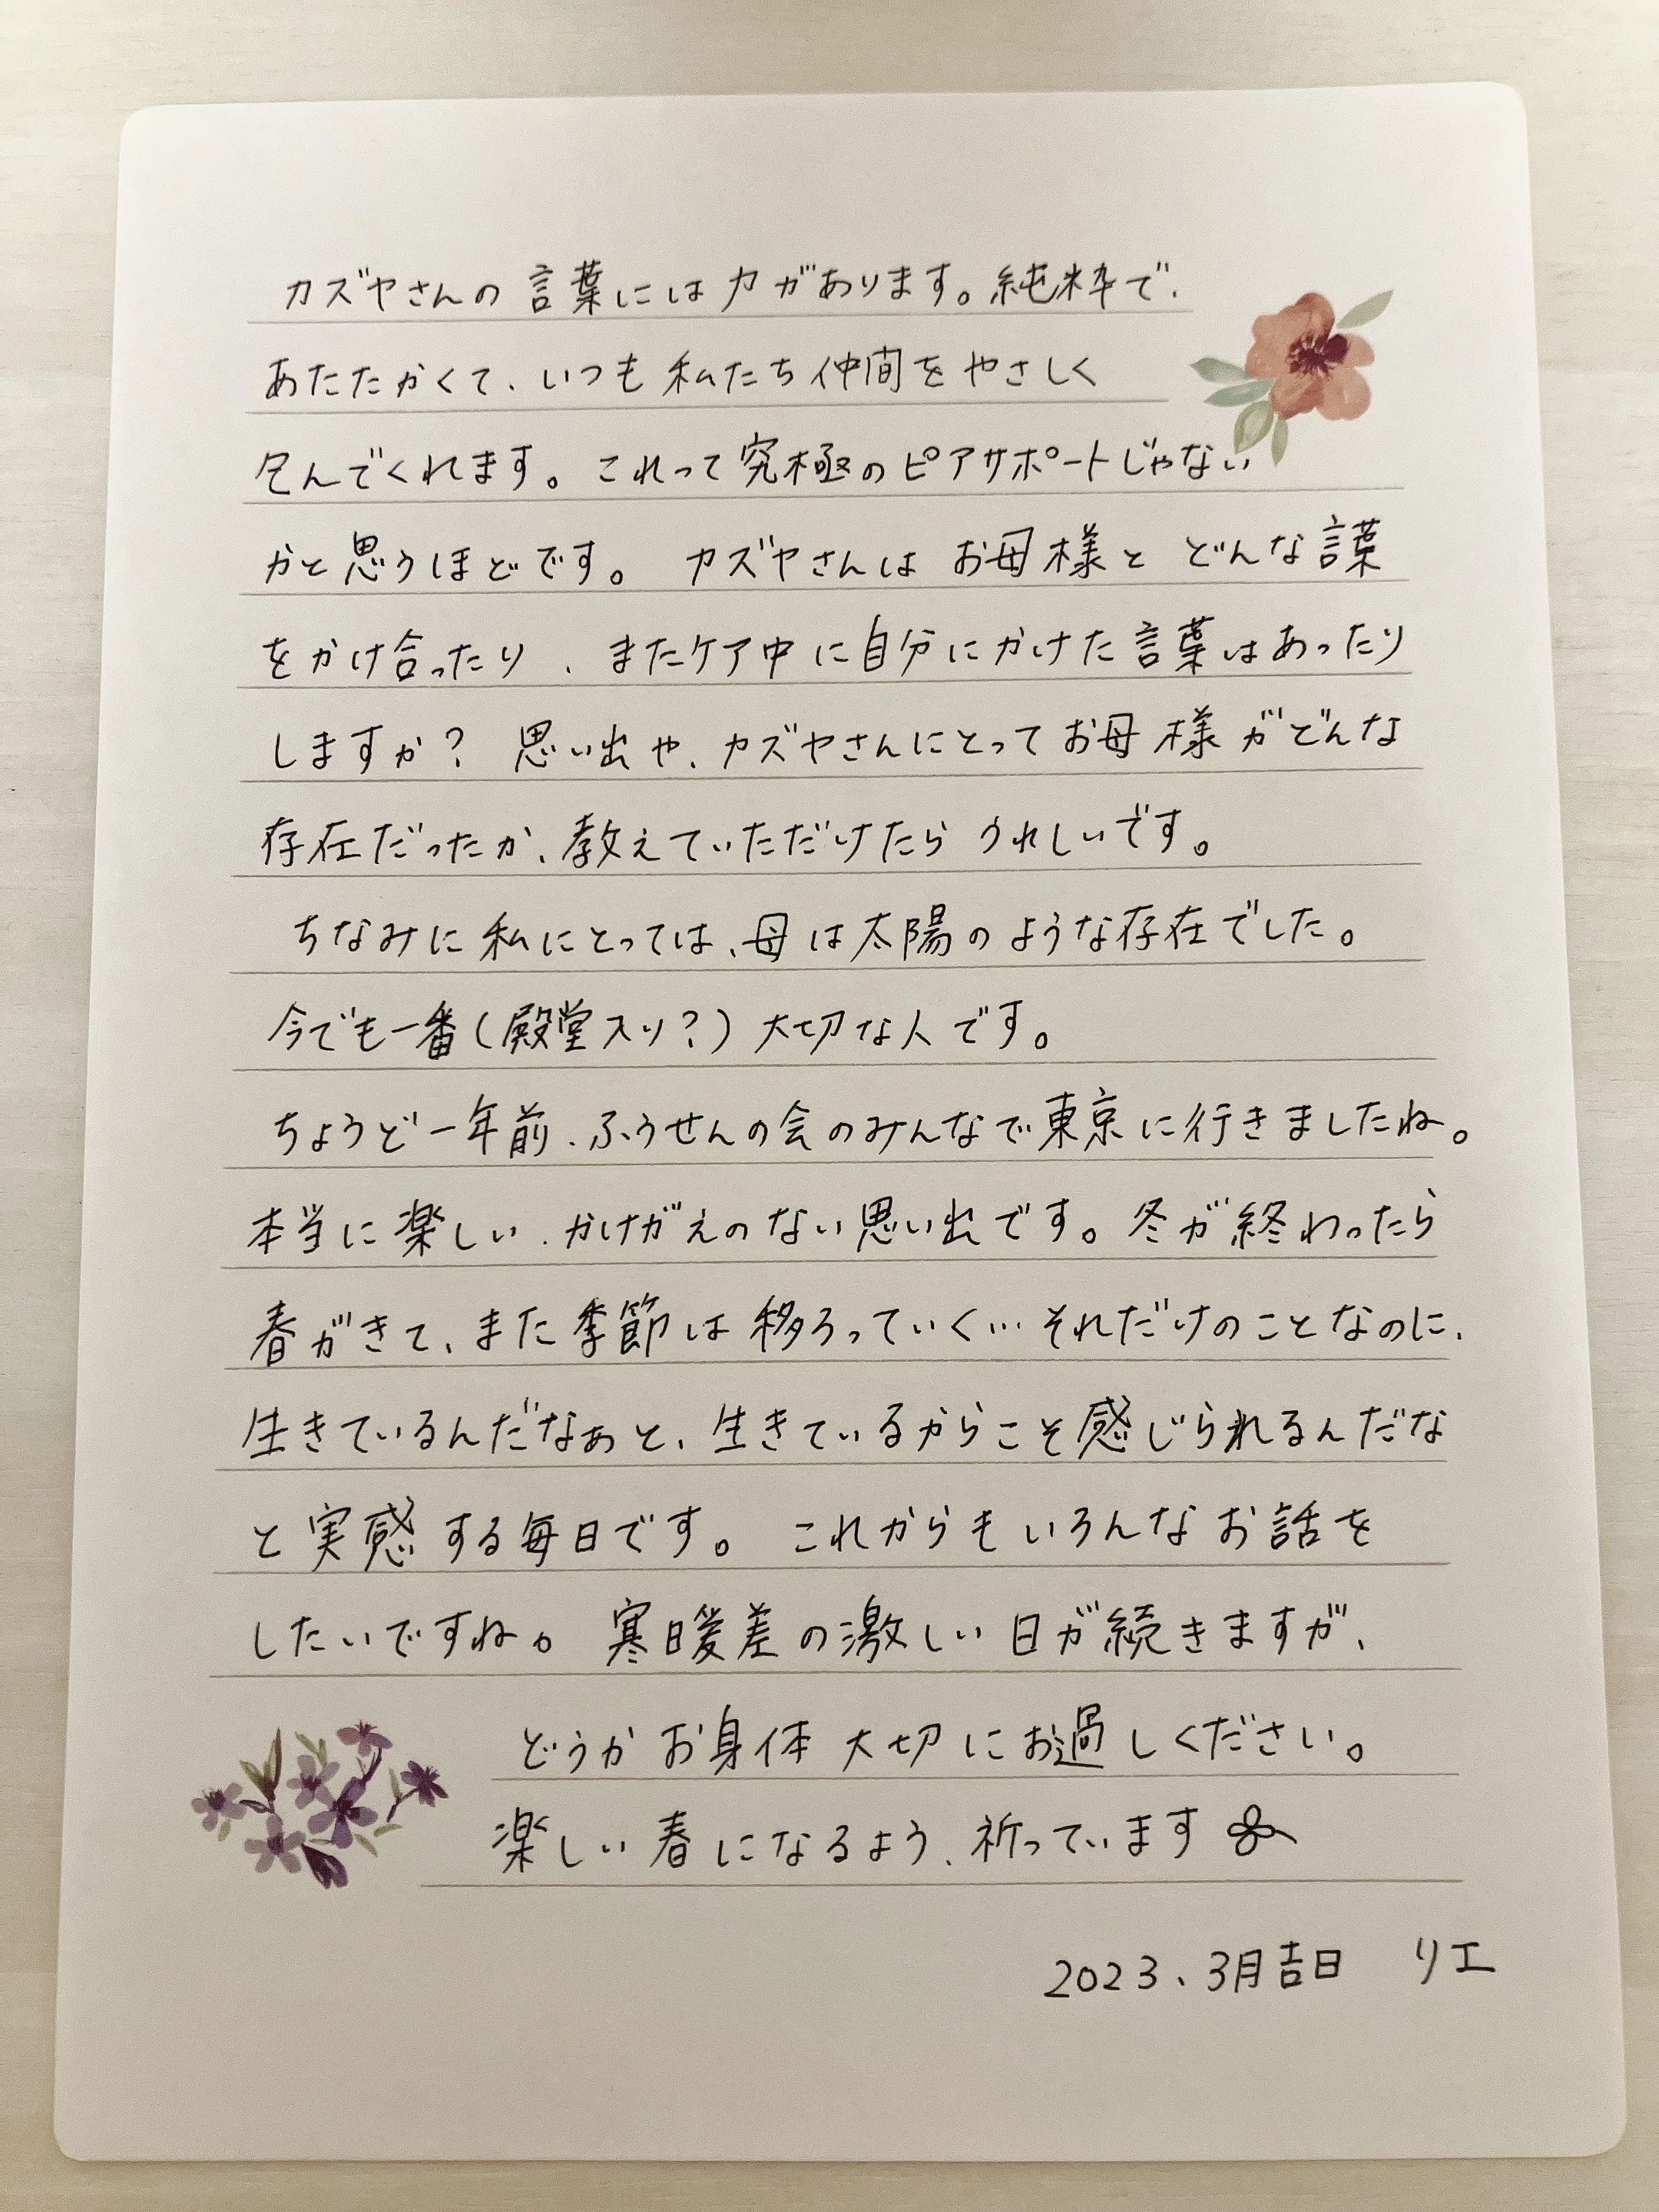 カズヤさんの言葉には力があります。純粋で、
あたたかくて、いつも私たち仲間をやさしく
包んでくれます。これって究極のピアサポートじゃない
かと思うほどです。 カズヤさんはお母様とどんな言葉
をかけ合ったり、またケア中に自分にかけた言葉はあったり
しますか? 思い出や、カズヤさんにとってお母様がどんな
存在だったか、教えていただけたらうれしいです。
ちなみに私にとっては、母は太陽のような存在でした。
今でも一番(殿堂入り?)大切な人です。
ちょうど一年前、ふうせんの会のみんなで東京に行きましたね。
本当に楽しい、かけがえのない思い出です。冬が終わったら
春がきて、また季節は移ろっていく…それだけのことなのに、
生きているんだなぁと、生きているからこそ感じられるんだな
と実感する毎日です。 これからもいろんなお話を
したいですね。 寒暖差の激しい日が続きますが、
どうかお身体大切にお過しください。
楽しい春になるよう、祈っています
2023、3月吉日 リエ